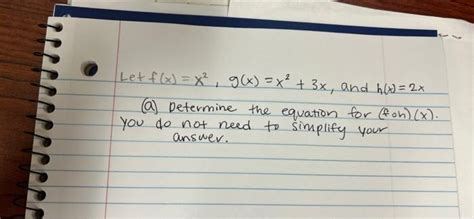 Let f(x) = x², g(x) = x² + 3x, and h(x) = 2x
(a) Determine the equation for (f∘h)(x).
You do not need to simplify your
answer.